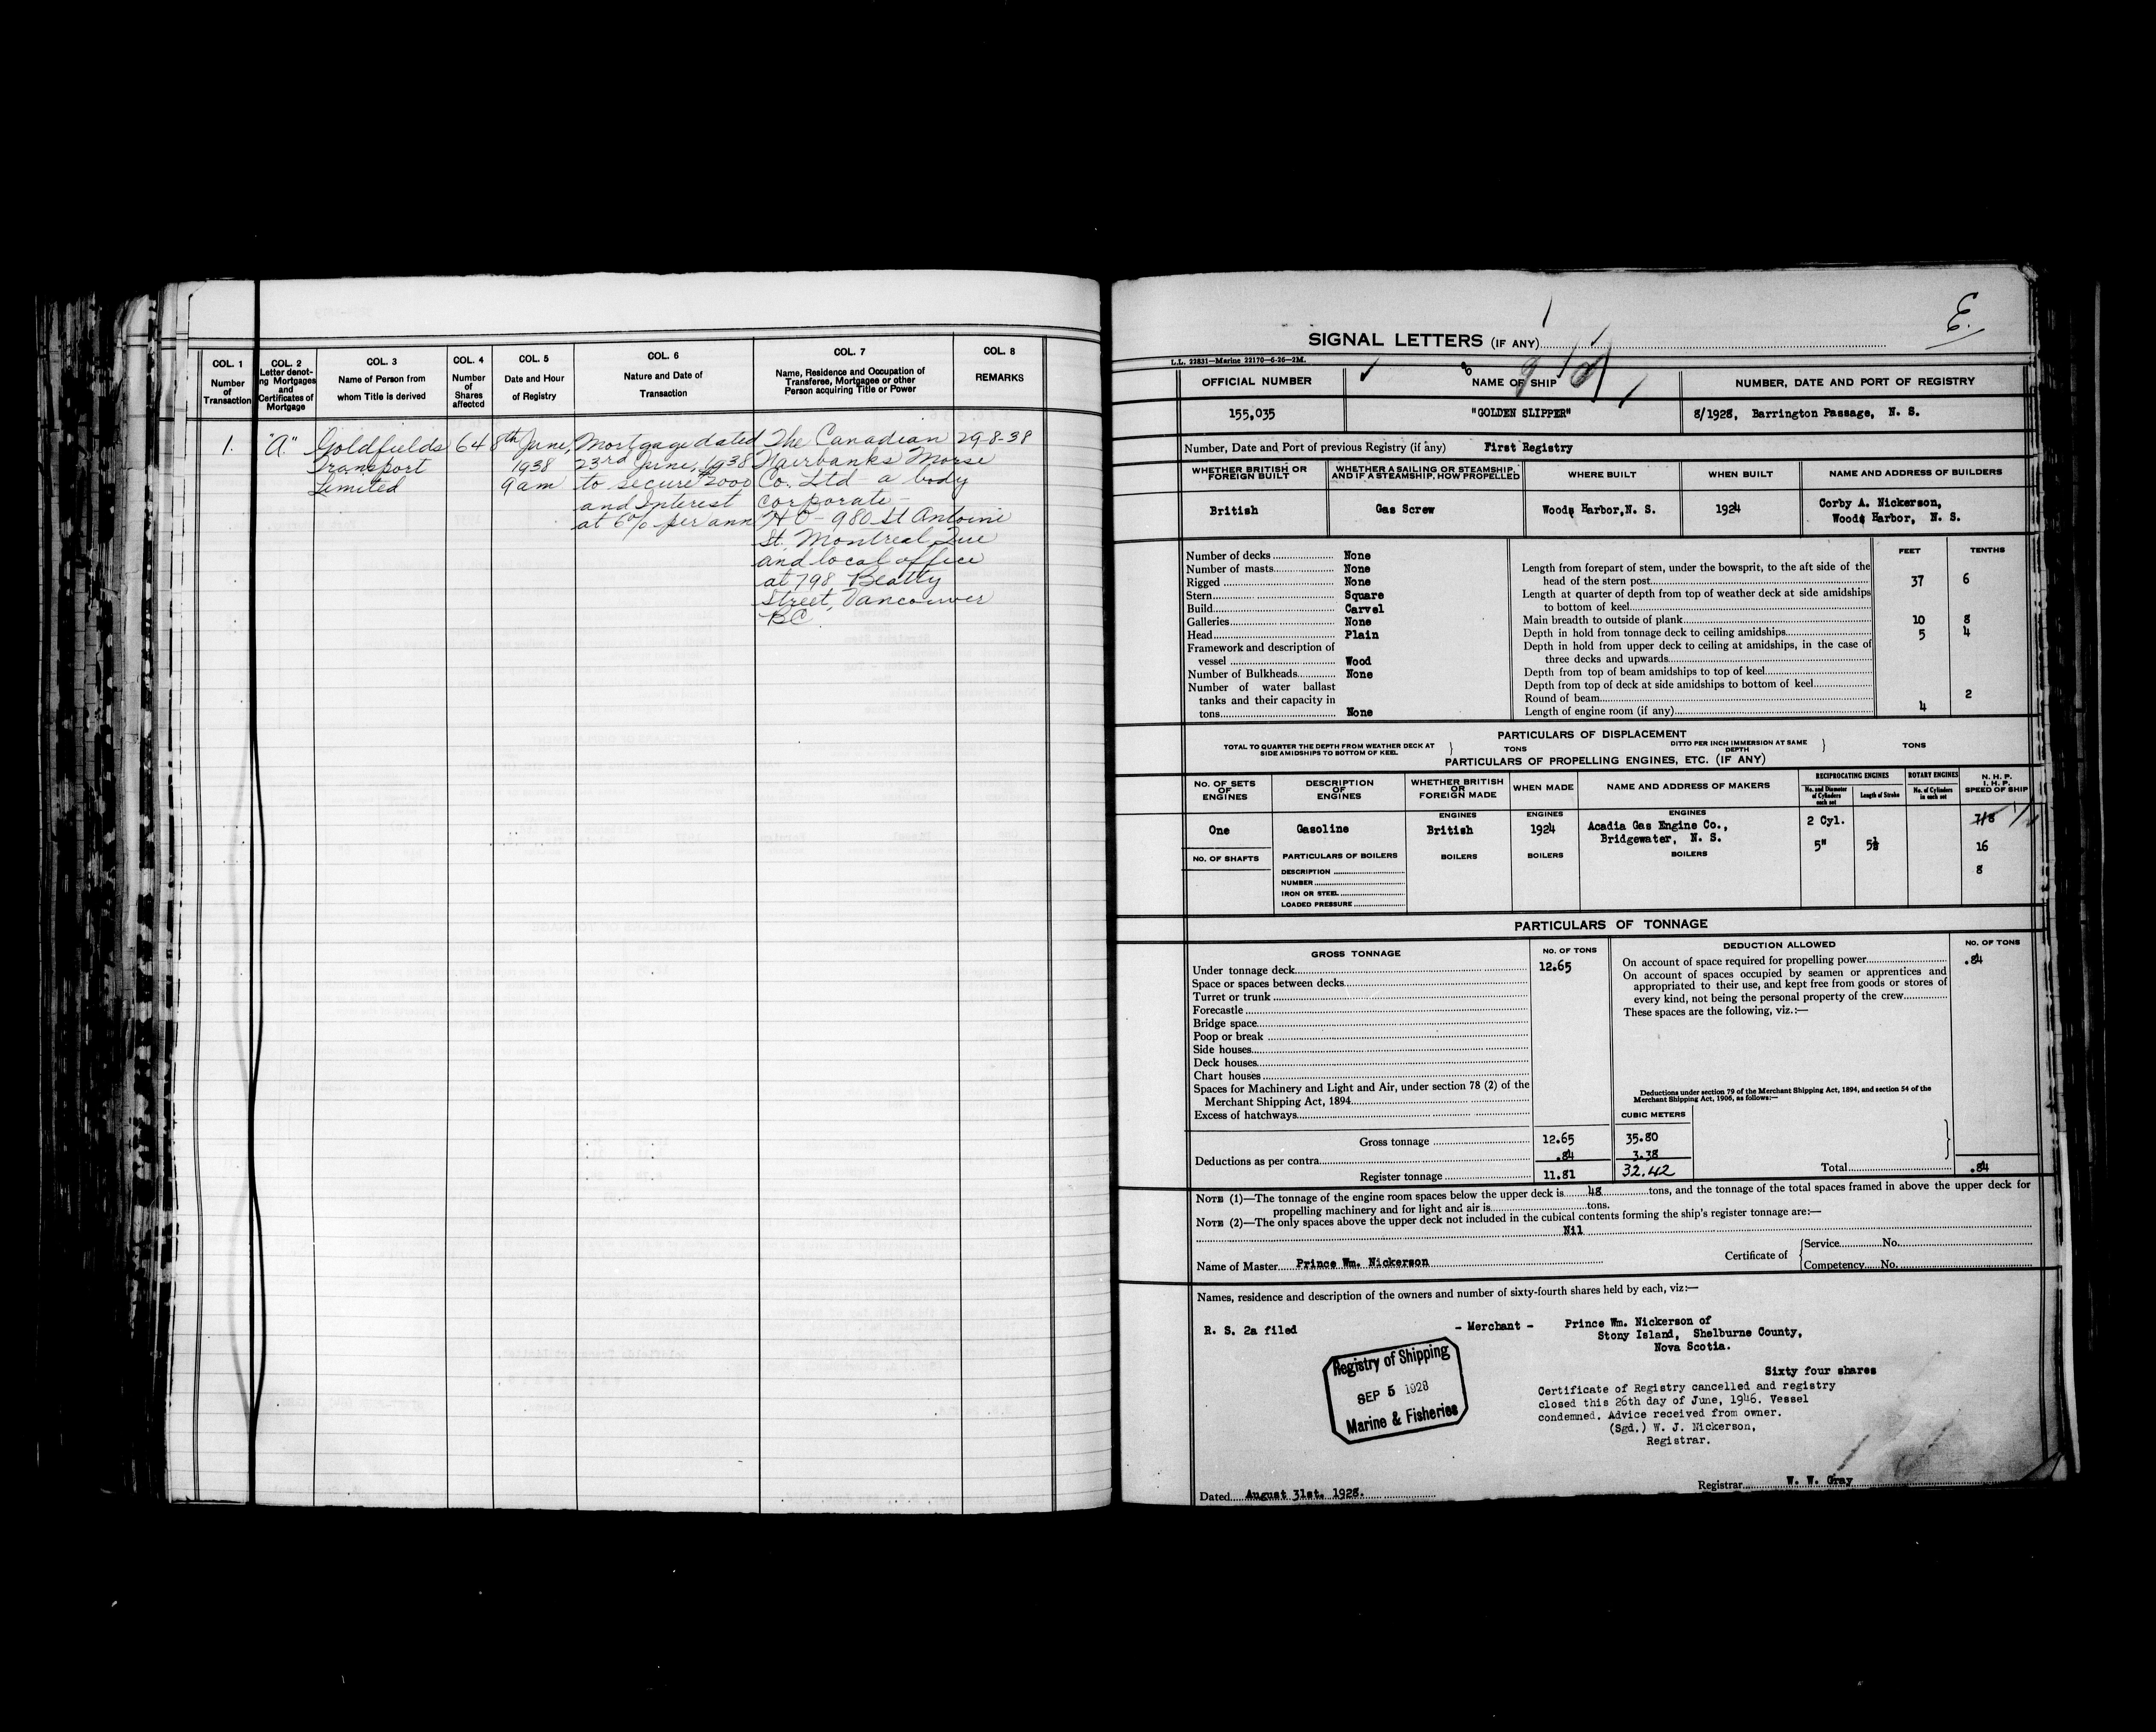 COL. 1
Number
of
Transaction
COL. 2
Letter denot-
ng Mortgages
and
Certificates of
Mortgage
COL. 3
Name of Person from
whom Title is derived
COL. 4
Number
of
Shares
affected
COL. 5
Date and Hour
of Registry
COL. 6
Nature and Date of
Transaction
COL. 7
Name, Residence and Occupation of
Transferee, Mortgagee or other
Person acquiring Title or Power
COL. 8
REMARKS
1.
"A."
Goldfields
Transport
Limited
64
8th June,
1938
9 am
Mortgage dated
23rd June, 1938
to secure $2000
and Interest
at 6% per ann
The Canadian
Fairbanks Morse
Co. Ltd - a body
corporate -
H O - 980 St Antoine
St. Montreal Que
and local office
at 798 Beatty
Street, Vancouver
BC.
29-8-38
E.
SIGNAL LETTERS (IF ANY)
L.L. 22831—Marine 22170—6-26—2M.
OFFICIAL NUMBER
NAME OF SHIP
NUMBER, DATE AND PORT OF REGISTRY
155,035
"GOLDEN SLIPPER"
8/1928, Barrington Passage, N. S.
Number, Date and Port of previous Registry (if any) First Registry
WHETHER BRITISH OR
FOREIGN BUILT
WHETHER A SAILING OR STEAMSHIP,
AND IF A STEAMSHIP, HOW PROPELLED
WHERE BUILT
WHEN BUILT
NAME AND ADDRESS OF BUILDERS
British
Gas Screw
Woods Harbor, N. S.
1924
Corby A. Nickerson,
Woods Harbor, N. S.
Number of decks None
Number of masts None
Rigged None
Stern Square
Build Carvel
Galleries None
Head Plain
Framework and description of
vessel Wood
Number of Bulkheads None
Number of water ballast
tanks and their capacity in
tons None
FEET TENTHS
Length from forepart of stem, under the bowsprit, to the aft side of the
head of the stern post 37 6
Length at quarter of depth from top of weather deck at side amidships
to bottom of keel
Main breadth to outside of plank 10 8
Depth in hold from tonnage deck to ceiling amidships 5 4
Depth in hold from upper deck to ceiling at amidships, in the case of
three decks and upwards
Depth from top of beam amidships to top of keel
Depth from top of deck at side amidships to bottom of keel
Round of beam 2
Length of engine room (if any) 4
PARTICULARS OF DISPLACEMENT
TOTAL TO QUARTER THE DEPTH FROM WEATHER DECK AT
SIDE AMIDSHIPS TO BOTTOM OF KEEL
TONS
DITTO PER INCH IMMERSION AT SAME
DEPTH
TONS
PARTICULARS OF PROPELLING ENGINES, ETC. (IF ANY)
NO. OF SETS
OF
ENGINES
DESCRIPTION
OF
ENGINES
WHETHER BRITISH
OR
FOREIGN MADE
WHEN MADE
NAME AND ADDRESS OF MAKERS
RECIPROCATING ENGINES
No. and Diameter
of Cylinders
each set
Length of Stroke
ROTARY ENGINES
No. of Cylinders
in each set
N. H. P.
I. H. P.
SPEED OF SHIP
ENGINES ENGINES ENGINES
One
Gasoline
British
1924
Acadia Gas Engine Co.,
Bridgewater, N. S.
2 Cyl.
5"
16
8
NO. OF SHAFTS
PARTICULARS OF BOILERS
BOILERS BOILERS BOILERS
DESCRIPTION
NUMBER
IRON OR STEEL
LOADED PRESSURE
PARTICULARS OF TONNAGE
GROSS TONNAGE
NO. OF TONS
Under tonnage deck 12.65
Space or spaces between decks
Turret or trunk
Forecastle
Bridge space
Poop or break
Side houses
Deck houses
Chart houses
Spaces for Machinery and Light and Air, under section 78 (2) of the
Merchant Shipping Act, 1894
Excess of hatchways
DEDUCTION ALLOWED
NO. OF TONS
On account of space required for propelling power .84
On account of spaces occupied by seamen or apprentices and
appropriated to their use, and kept free from goods or stores of
every kind, not being the personal property of the crew
These spaces are the following, viz.:—
Deductions under section 79 of the Merchant Shipping Act, 1894, and section 54 of the
Merchant Shipping Act, 1906, as follows:—
CUBIC METERS
Gross tonnage 12.65 35.80
Deductions as per contra .84 3.38
Register tonnage 11.81 32.42
Total .84
NOTE (1)—The tonnage of the engine room spaces below the upper deck is 48 tons, and the tonnage of the total spaces framed in above the upper deck for
propelling machinery and for light and air is tons.
NOTE (2)—The only spaces above the upper deck not included in the cubical contents forming the ship's register tonnage are:—
Nil
Name of Master Prince Wm. Nickerson
Certificate of
Service No.
Competency No.
Names, residence and description of the owners and number of sixty-fourth shares held by each, viz:—
R. S. 2a filed
- Merchant -
Prince Wm. Nickerson of
Stony Island, Shelburne County,
Nova Scotia.
Sixty four shares
Registry of Shipping
SEP 5 1928
Marine & Fisheries
Certificate of Registry cancelled and registry
closed this 26th day of June, 1946. Vessel
condemned. Advice received from owner.
(Sgd.) W. J. Nickerson,
Registrar.
Dated August 31st. 1928.
Registrar W. W. Gray